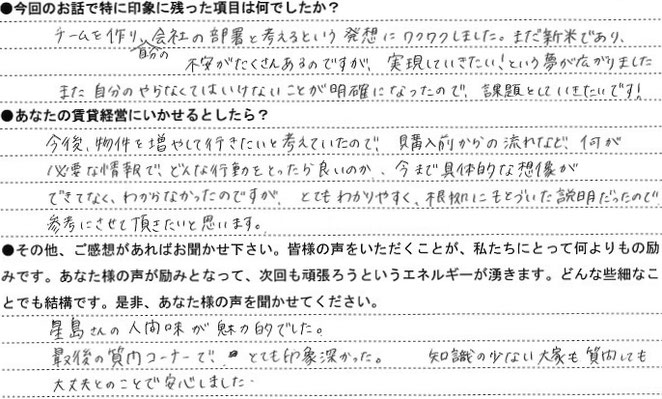 ●今回のお話で特に印象に残った項目は何でしたか？
チームを作り、自分の会社の部署と考えるという発想にワクワクしました。まだ新米であり、
不安がたくさんあるのですが、実現していきたい！という夢が広がりました
また自分のやらなくてはいけないことが明確になったので、課題としていきたいです！
●あなたの賃貸経営にいかせるとしたら？
今後、物件を増やして行きたいと考えていたので、購入前からの流れなど、何が
必要な情報で、どんな行動をとったら良いのか、今まで具体的な想像が
できてなく、わからなかったのですが、とてもわかりやすく、根拠にもとづいた説明だったので
参考にさせて頂きたいと思います。
●その他、ご感想があればお聞かせ下さい。皆様の声をいただくことが、私たちにとって何よりもの励
みです。あなた様の声が励みとなって、次回も頑張ろうというエネルギーが湧きます。どんな些細なこ
とでも結構です。是非、あなた様の声を聞かせてください。
星島さんの人間味が魅力的でした。
最後の質問コーナーで、とても印象深かった。 知識の少ない大家も質問しても
大丈夫とのことで安心しました。